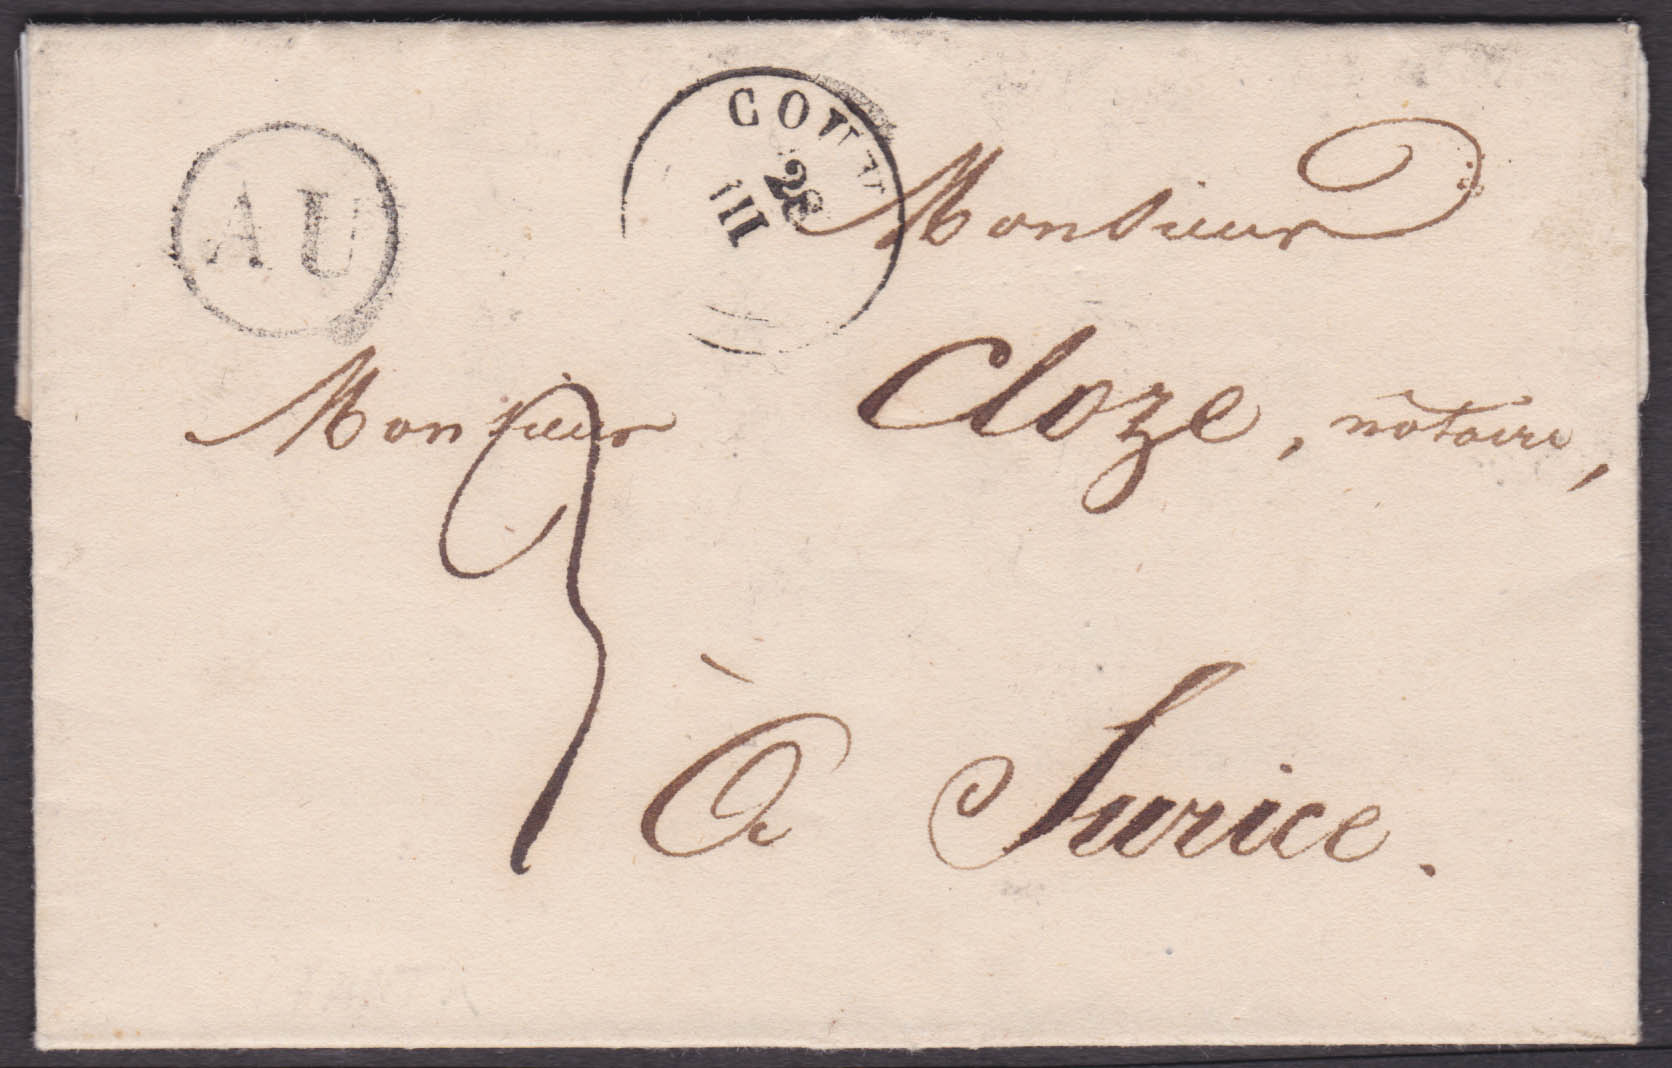 AU
COUVIN
28
III
Monsieur
Monsieur Cloze, notaire,
3
à Surice.